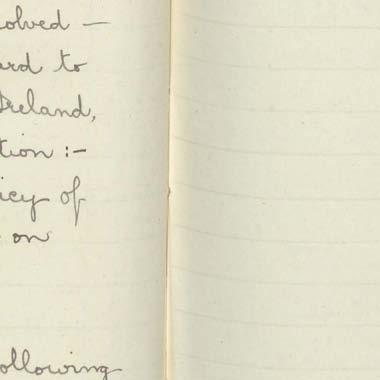 solved —
ard to
Ireland,
tion :-
icy of
on
ollowing